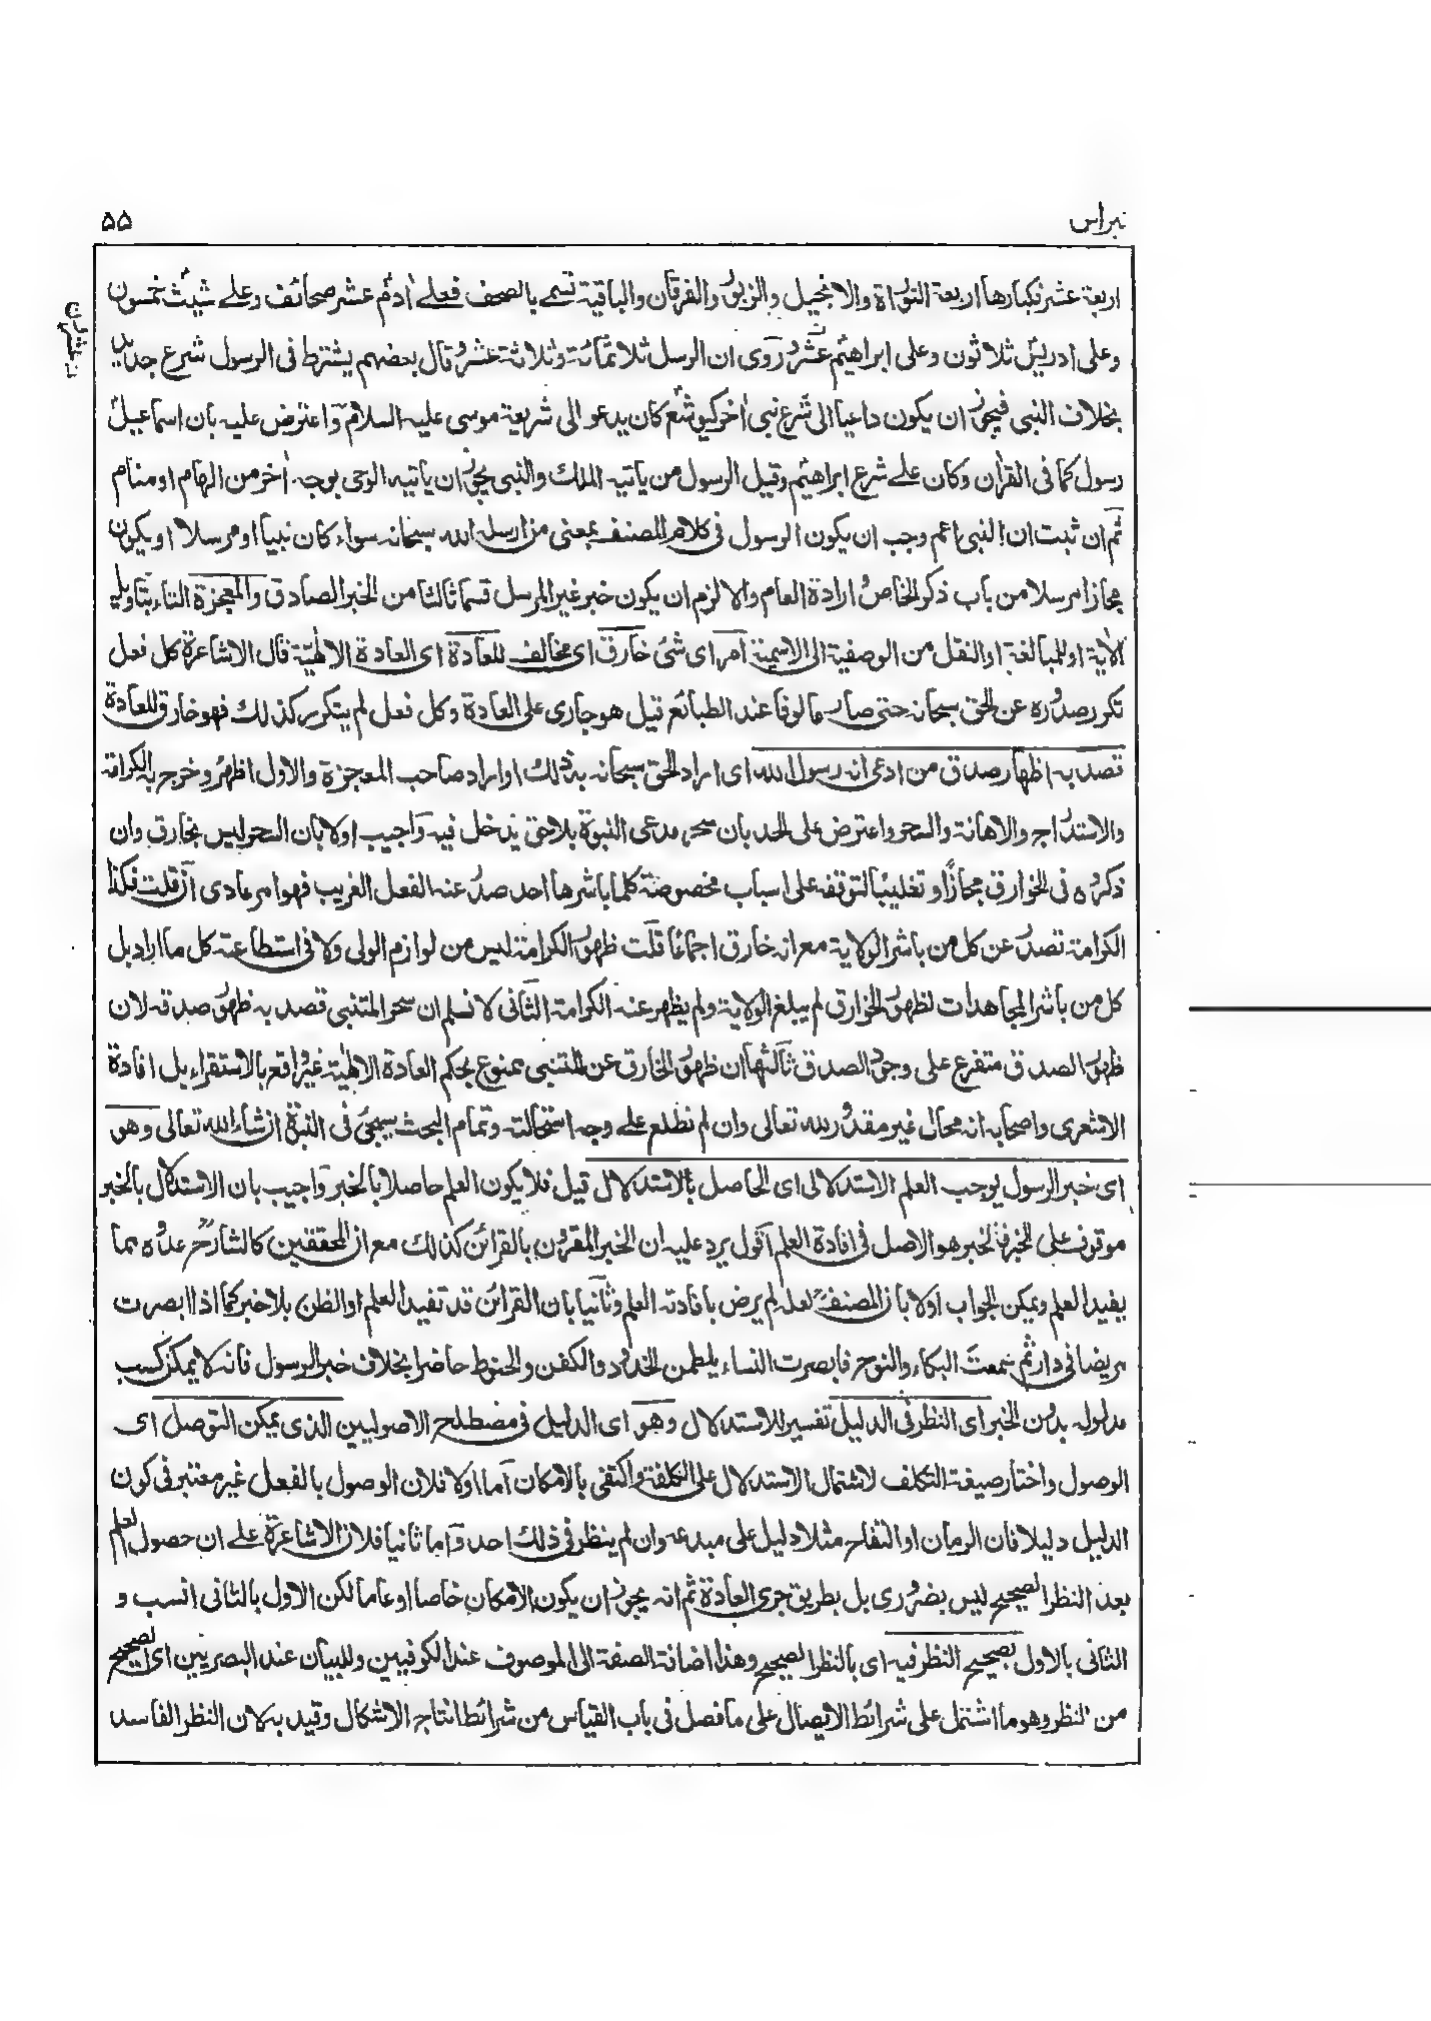 نبراس
۵۵
اربعة عشر فكبارها اربعة التورٰاة والانجيل والزبور والفرقان والباقية تسمے بالصحف فعلے اٰدمؑ عشر صحائف وعلے شيثؑ خمسون
وعلى ادريسؑ ثلاثون وعلى ابراهيمؑ عشر روى ان الرسل ثلاثمائة وثلاثة عشر قال بعضهم يشترط فى الرسول شرع جديد
بخلاف النبى فيجوز ان يكون داعيا الى شرع نبى اٰخر كيوشعؑ كان يدعو الى شريعة موسى عليه السلام واعترض عليه بان اسماعيلؑ
رسول كما فى القراٰن وكان علے شرع ابراهيمؑ وقيل الرسول من ياتيه الملك والنبى يجوز ان ياتيه الوحى بوجه اٰخر من الهام او منام
ثم ان ثبت ان النبى اعم وجب ان يكون الرسول فى كلام المصنف بمعنى من ارسله الله سبحانه سواء كان نبيا او مرسلا او يكون
مجازا مرسلا من باب ذكر الخاص ارادة العام والا لزم ان يكون خبر غير المرسل قسما ثالثا من الخبر الصادق والمعجزة التاء بتاويل
الاٰية او للمبالغة او النقل من الوصفية الى الاسمية امر اى شئ خارق اى مخالف للعادة اى العادة الالٰهية قال الاشاعرة كل فعل
تكرر صدوره عن الحق سبحانه حتى صار مالوفا عند الطبائع قيل هو جارى على العادة وكل فعل لم يتكرر كذلك فهو خارق للعادة
قصد به اظهار صدق من ادعى انه رسول الله اى اراد الحق سبحانه به ذلك او اراد صاحب المعجزة والاول اظهر وخرج به الكرامة
والاستدراج والاهانة والسحر واعترض على الحد بان سحر مدعى النبوة بلا حق يدخل فيه واجيب اولا بان السحر ليس بخارق وان
ذكروه فى الخوارق مجازًا او تغليبًا لتوقفه على اسباب مخصوصة كلما باشرها احد صدر عنه الفعل الغريب فهو امر عادى ان قلت فكذا
الكرامة تصدر عن كل من باشر الولاية مع انه خارق اجماعًا قلت ظهور الكرامة ليس من لوازم الولى ولا فى استطاعته كل ما اراد بل
كل من باشر المجاهدات لظهور الخوارق لم يبلغ الولاية ولم يظهر عنه الكرامة الثانى لا نسلم ان سحر المتنبى قصد به ظهور صدقه لان
ظهور الصدق متفرع على وجود الصدق ثالثها ان ظهور الخارق عن المتنبى ممنوع بحكم العادة الالٰهية غير واقع بالاستقراء بل افادة
الاشعرى واصحابه انه محال غير مقدور لله تعالى وان لم نطلع علے وجه استحالته وتمام البحث سيجئ فى النبوة ان شاء الله تعالى وهو
اى خبر الرسول يوجب العلم الاستدلالى اى الحاصل بالاستدلال قيل فلا يكون العلم حاصلا بالخبر واجيب بان الاستدلال بالخبر
موقوف على الخبر فالخبر هو الاصل فى افادة العلم اقول يرد عليه ان الخبر المقرون بالقرائن كذلك مع ان المحققين كالشارح عدوه مما
يفيد العلم ويمكن الجواب اولا بان المصنف لعله لم يرض بافادته العلم وثانيا بان القرائن قد تفيد العلم او الظن بلا خبر كما اذا ابصرت
مريضا فى دار ثم سمعت البكاء والنوح فابصرت النساء يلطمن الخدود والكفن والحنوط حاضرا بخلاف خبر الرسول فانه لا يمكن كسب
مدلوله بدون الخبر اى النظر فى الدليل تفسير للاستدلال وهو اى الدليل فى مصطلح الاصوليين الذى يمكن التوصل اى
الوصول واختار صيغة التكلف لاشتمال الاستدلال على الكلفة واكتفى بالامكان اما اولا فلان الوصول بالفعل غير معتبر فى كون
الدليل دليلا فان الرمان او التفاح مثلا دليل على مبدعه وان لم ينظر فى ذلك احد واما ثانيا فلان الاشاعرة علے ان حصول العلم
بعد النظر الصحيح ليس بضرورى بل بطريق جرى العادة ثم انه يجوز ان يكون الامكان خاصا او عاما لكن الاول بالثانى انسب و
الثانى بالاول بصحيح النظر فيه اى بالنظر الصحيح وهذا اضافة الصفة الى الموصوف عند الكوفيين وللبيان عند البصريين اى الصحيح
من النظر وهو ما اشتمل على شرائط الايصال على ما فصل فى باب القياس من شرائط انتاج الاشكال وقيد به لان النظر الفاسد